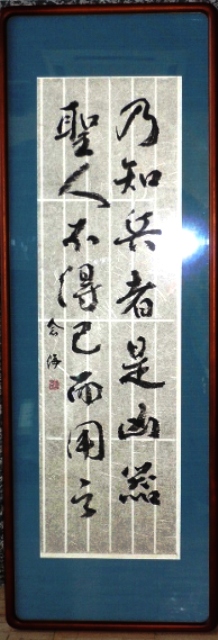 乃知兵者是凶器
聖人不得已而用之